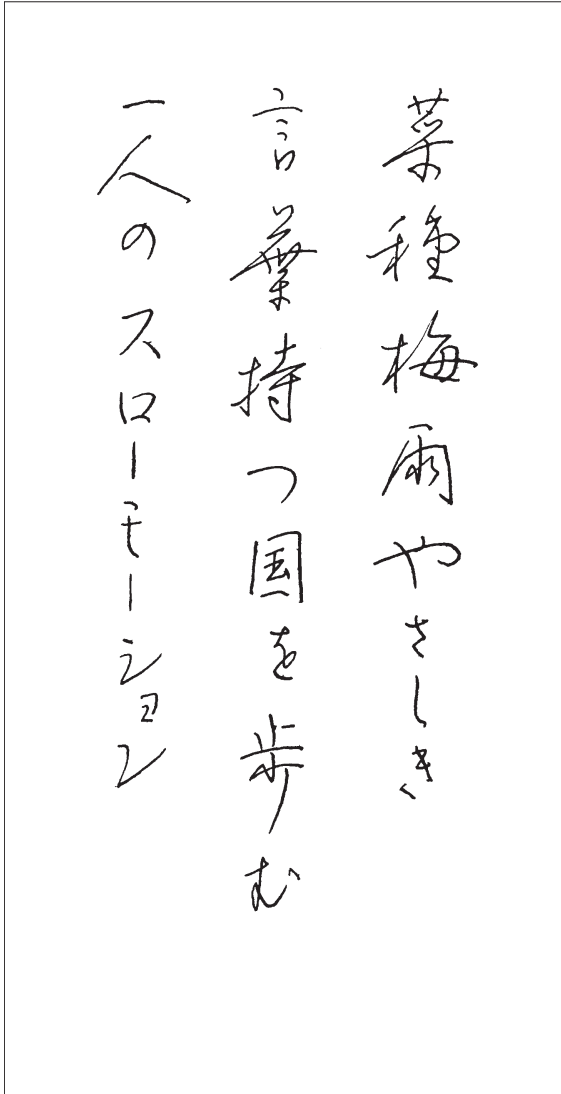 菜種梅雨やさしき
言葉持つ国を歩む
一人のスローモーション